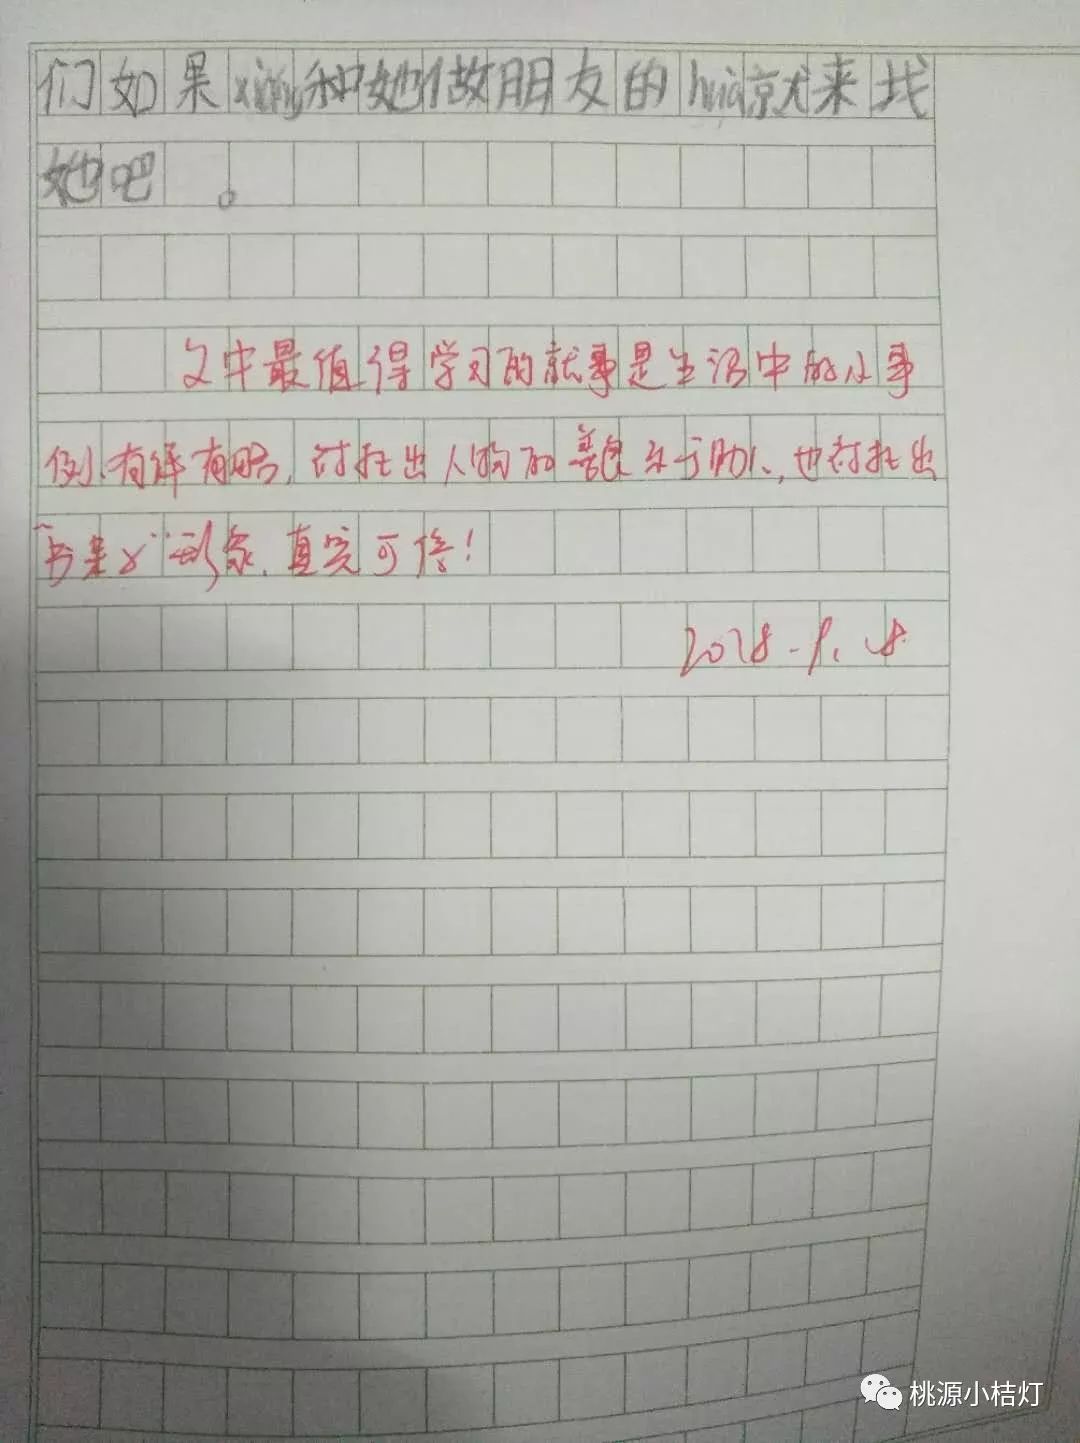 们如果xiǎng和她做朋友的huà就来找
她吧。
文中最值得学习的就事是生活中的小事
例、有详有略,衬托出人物的善良乐于助人,也衬托出
"书呆子"形象,真实可信!
2018.9.18
桃源小桔灯